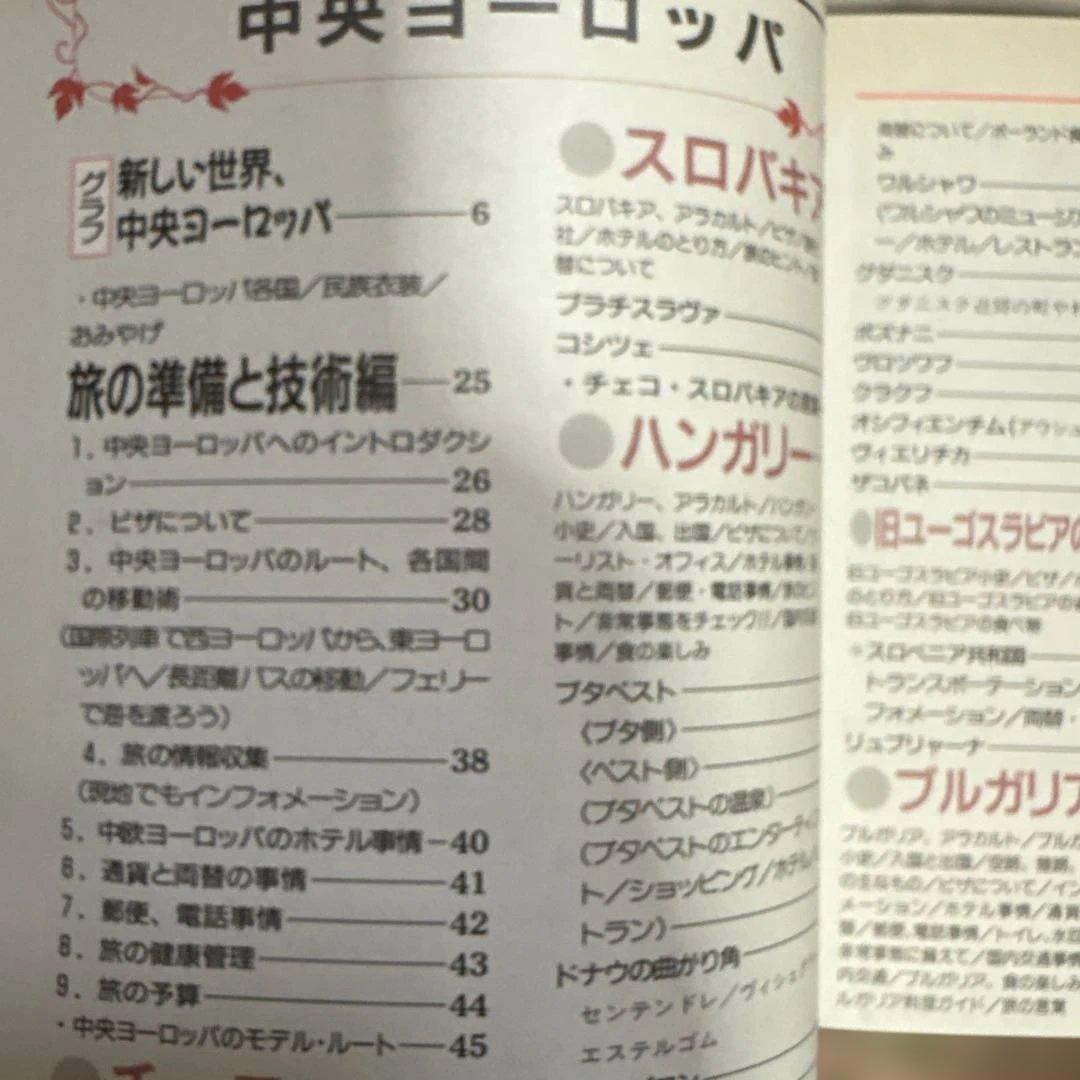 中央ヨーロッパ
グラフ
新しい世界、
中央ヨーロッパ 6
・中央ヨーロッパ各国／民族衣装／
おみやげ
旅の準備と技術編 25
1．中央ヨーロッパへのイントロダクシ
ョン 26
2．ビザについて 28
3．中央ヨーロッパのルート、各国間
の移動術 30
(国際列車で西ヨーロッパから、東ヨーロ
ッパへ／長距離バスの移動／フェリー
で海を渡ろう)
4．旅の情報収集 38
(現地でもインフォメーション)
5．中欧ヨーロッパのホテル事情 40
6．通貨と両替の事情 41
7．郵便、電話事情 42
8．旅の健康管理 43
9．旅の予算 44
・中央ヨーロッパのモデル・ルート 45
スロバキア
スロバキア、アラカルト／ビザ／
社／ホテルのとり方／旅のヒント／
替について
ブラチスラヴァ
コシツェ
・チェコ・スロバキアの
ハンガリー
ハンガリー、アラカルト／ハンガリー
小史／入国、出国／ビザについて／
ーリスト・オフィス／ホテル事情／
貨と両替／郵便・電話事情／旅のヒン
ト／非常事態をチェック!!／国内
事情／食の楽しみ
ブダペスト
〈ブダ側〉
〈ペスト側〉
(ブダペストの温泉)
(ブダペストのエンターテイ
ト／ショッピング／ホテル／
トラン)
ドナウの曲がり角
センテンドレ／ヴィシェグラ
エステルゴム
両替について／ポーランド食
み
ワルシャワ
(ワルシャワのミュージア
ー／ホテル／レストラン
グダニスク
グダニスク近郊の町や村
ポズナニ
ヴロツワフ
クラクフ
オシフィエンチム(アウシュ
ヴィエリチカ
ザコパネ
旧ユーゴスラビアの
旧ユーゴスラビア小史／ビザ／
のとり方／旧ユーゴスラビアの
旧ユーゴスラビアの食べ物
＊スロベニア共和国
トランスポーテーション
フォメーション／両替・
リュブリャーナ
ブルガリア
ブルガリア、アラカルト／ブルガ
小史／入国と出国／空路、陸路、
の主なもの／ビザについて／イン
メーション／ホテル事情／通貨
替／郵便、電話事情／トイレ、水
非常事態に備えて／国内交通事情
内交通／ブルガリア、食の楽しみ
ルガリア料理ガイド／旅の言葉